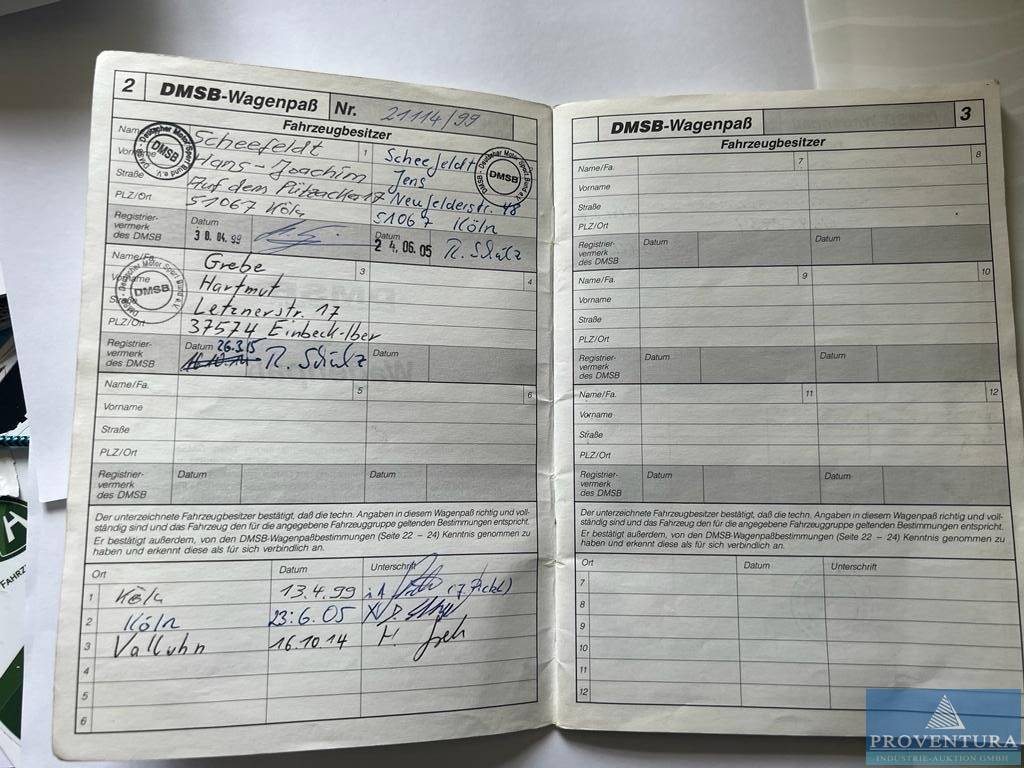 2 DMSB-Wagenpaß Nr. 21114/99
Fahrzeugbesitzer
Name/Fa. Scheefeldt 1 Scheefeldt
Vorname Hans-Joachim Jens
Straße Auf dem 17 Neufelderstr. 48
PLZ/Ort 51067 Köln 51067 Köln
Registrier-
vermerk
des DMSB
Datum
30.04.99
Datum
24.06.05 R. Schulz
Deutscher Motor Sport Bund e.V. DMSB
Deutscher Motor Sport Bund e.V. DMSB
Name/Fa. Grebe 3 4
Vorname Hartmut
Straße Letznerstr. 17
PLZ/Ort 37574 Einbeck-Iber
Deutscher Motor Sport Bund e.V. DMSB
Registrier-
vermerk
des DMSB
Datum 26.3.15 R. Schulz
Datum
Name/Fa. 5 6
Vorname
Straße
PLZ/Ort
Registrier-
vermerk
des DMSB
Datum Datum
Der unterzeichnete Fahrzeugbesitzer bestätigt, daß die techn. Angaben in diesem Wagenpaß richtig und voll-
ständig sind und das Fahrzeug den für die angegebene Fahrzeuggruppe geltenden Bestimmungen entspricht.
Er bestätigt außerdem, von den DMSB-Wagenpaßbestimmungen (Seite 22 – 24) Kenntnis genommen zu
haben und erkennt diese als für sich verbindlich an.
Ort Datum Unterschrift
1 Köln 13.4.99 i.A.
2 Köln 23.6.05
3 Valluhn 16.10.14 H.
4
5
6
DMSB-Wagenpaß 3
Fahrzeugbesitzer
Name/Fa. 7 8
Vorname
Straße
PLZ/Ort
Registrier-
vermerk
des DMSB
Datum Datum
Name/Fa. 9 10
Vorname
Straße
PLZ/Ort
Registrier-
vermerk
des DMSB
Datum Datum
Name/Fa. 11 12
Vorname
Straße
PLZ/Ort
Registrier-
vermerk
des DMSB
Datum Datum
Der unterzeichnete Fahrzeugbesitzer bestätigt, daß die techn. Angaben in diesem Wagenpaß richtig und voll-
ständig sind und das Fahrzeug den für die angegebene Fahrzeuggruppe geltenden Bestimmungen entspricht.
Er bestätigt außerdem, von den DMSB-Wagenpaßbestimmungen (Seite 22 – 24) Kenntnis genommen zu
haben und erkennt diese als für sich verbindlich an.
Ort Datum Unterschrift
7
8
9
10
11
12
PROVENTURA
INDUSTRIE-AUKTION GMBH